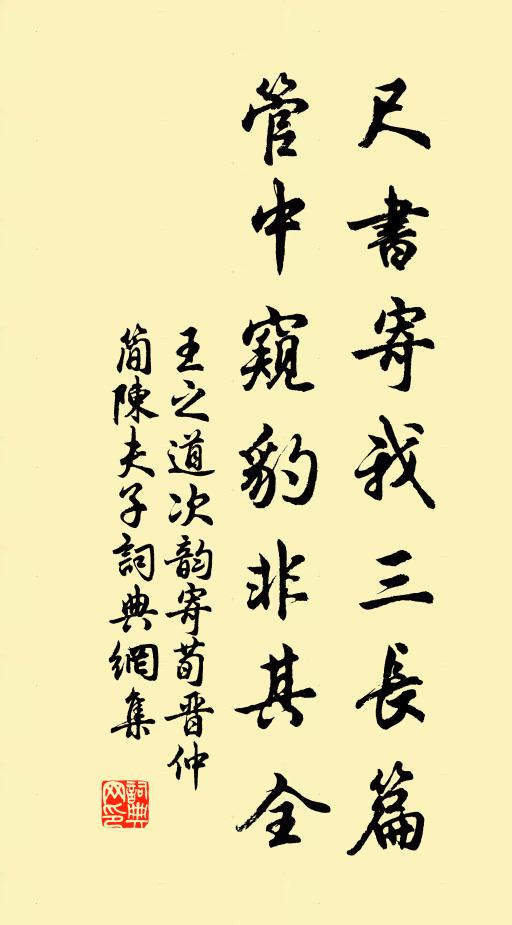 尺書寄我三長篇
管中窺豹非其全
王之道次韵寄荀晋仲
簡陳夫子詞典網集
詞典网印